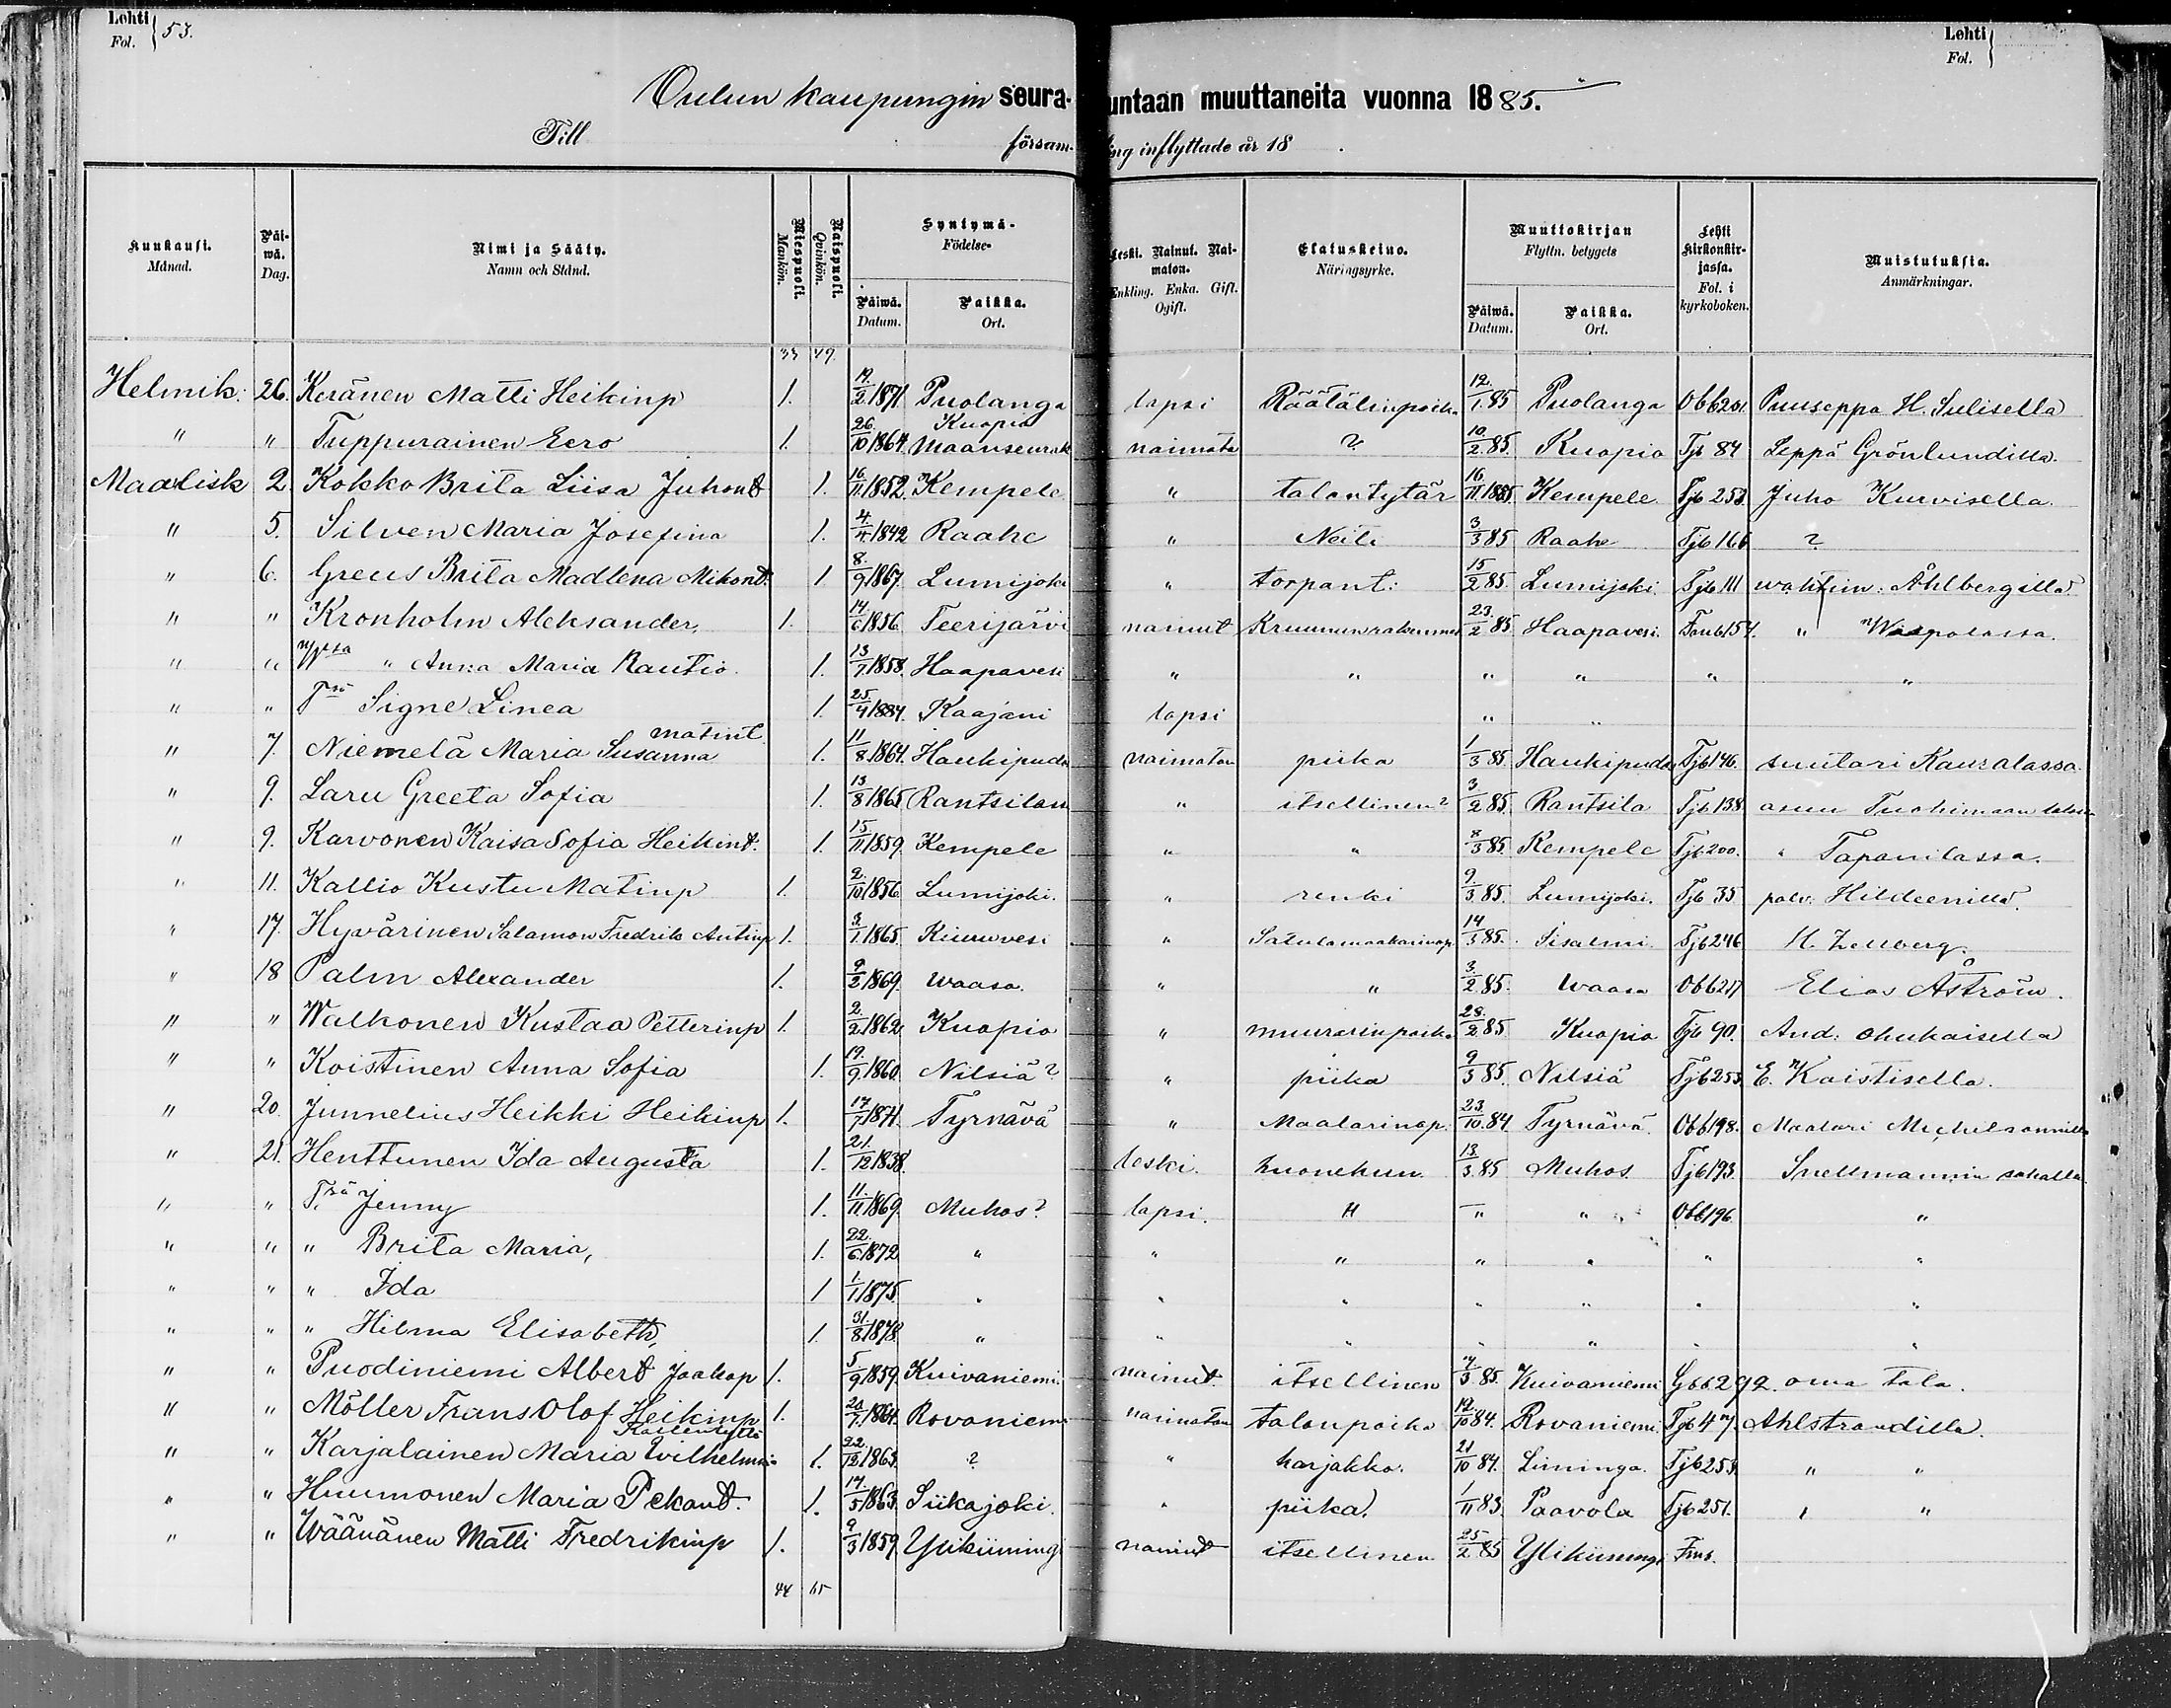 Lehti Fol. 53.
Lehti Fol.
Oulun kaupungin seurakuntaan muuttaneita vuonna 1885.
Till församling inflyttade år 18 .
Kuukausi. Månad.
Päiwä. Dag.
Nimi ja Sääty. Namn och Stånd.
Miespuoli. Mankön.
Naispuoli. Qvinkön.
Syntymä- Födelse-
Päiwä. Datum.
Paikka. Ort.
Leski. Nainut. Naimaton. Enkling. Enka. Gift. Ogift.
Elatuskeino. Näringsyrke.
Muuttokirjan Flyttn. betygets
Päiwä. Datum.
Paikka. Ort.
Lehti kirkonkirjassa. Fol. i kyrkoboken.
Muistutuksia. Anmärkningar.
33 49.
Helmik. 26. Keränen Matti Heikinp 1. 19/2 1871. Puolanga lapsi Räätälinpoika 12/1 85 Puolanga Obb201. Puuseppa H. Sulisella
" " Tuppurainen Eero 1. 26/10 1864. Kuopio Maanseurak naimato ? 10/2 85. Kuopio Tjb 84 Leppä Grönlundilla.
Maalisk 2. Kokko Brita Liisa Juhont 1. 16/11 1852. Kempele " talontytär 16/11 1885. Kempele Tjb 258 Juho Kurvisella.
" 5. Silven Maria Josefina 1. 4/4 1842 Raahe " Neiti 3/3 85 Raahe Tjb 166 ?
" 6. Greus Brita Madlena Mikont. 1. 8/9 1867. Lumijoki " torpant: 15/2 85. Lumijoki. Tjb 111 wahtim: Åhlbergilla
" " Kronholm Aleksander, 1. 14/6 1856 Teerijärvi nainut Kruununrakunmes 23/2 85. Haapavesi. " Waapolassa.
" " Wsa " Anna Maria Rautio. 1. 13/7 1858. Haapavesi " " " " " "
" " Tsä Signe Linea 1. 25/4 1884. Kaajani lapsi " "
" 7. Niemelä Maria Susanna matint. 1. 11/8 1864. Haukipudas naimaton piika 1/3 85. Haukipudas Tjb146. suutari Kauralassa
" 9. Laru Greeta Sofia 1. 13/8 1865 Rantsilan " itsellinen? 3/2 85. Rantsila Tjb 138 asuu Tuohimaan talossa
" 9. Karvonen Kaisa Sofia Heikint. 1. 15/11 1859. Kempele " " 8/3 85. Kempele Tjb200. " Tapanilassa.
" 11. Kallio Kustu Matinp 1. 2/10 1856 Lumijoki. " renki 9/3 85. Lumijoki. Tjb 35 palv. Hildeenillä.
" 17. Hyvärinen Salamon Fredrik Antinp 1. 3/1 1865. Kiuruvesi " Satulamaakarinop. 14/3 85. Iisalmi. Tjb246 H. Zellberg.
" 18 Palm Alexander 1. 9/2 1869. Waasa. " " 3/2 85. Waasa Obb217 Elias Åström.
" " Walkonen Kustaa Petterinp 1. 2/2 1862 Kuopio " muurarinpoika 28/2 85. Kuopio Tjb 90. And: Ohukaisella
" " Koistinen Anna Sofia 1. 19/9 1860 Nilsiä? " piika 9/3 85. Nilsiä Tjb253. E. Koistisella.
" 20. Junnelius Heikki Heikinp 1. 17/7 1871. Tyrnävä " Maalarinop. 23/10 84. Tyrnävä. Obb198. Maalari Michelsonnilla
" 21. Henttunen Ida Augusta 1. 21/12 1838. leski. huonekun. 13/3 85 Muhos. Tjb193. Snellmannin sahalla.
" " Tsä Jenny 1. 11/11 1869. Muhos? lapsi. " " " Obb196. "
" " " Brita Maria, 1. 22/6 1872 " " " " " " "
" " " Ida 1 1/1 1875. " " " " " " "
" " " Hilma Elisabeth, 1. 31/8 1878. " " " " " " "
" " Puodiniemi Albert Jaakop 1. 5/9 1859. Kuivaniemi. nainut. itsellinen 7/3 85. Kuivaniemi Gbb292. oma talo.
" " Möller Frans Olof Heikinp 1. 20/7 1864. Rovaniemi naimaton talonpoika 12/10 84. Rovaniemi. Tjb 47 Ahlstrandilla.
" " Karjalainen Maria Wilhelmiina 1. 22/12 1863. ? " karjakko. 21/10 84. Liminga. Tjb253. " "
" " Huumonen Maria Pekant. 1. 17/5 1863 Siikajoki. " piika. 1/11 83. Paavola Tjb251. " "
" " Wäänänen Matti Fredrikinp 1. 9/3 1859. Ylikiiming nainut itsellinen 25/2 85 Ylikiiming.
44 65